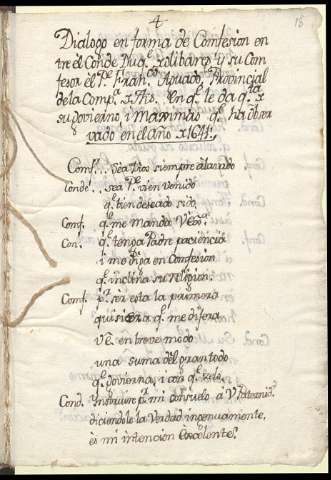 4
18
Dialogo en forma de Confesion en
tre el Conde Duq. de Olibares y su Con
fesor el Pe. Franco. Aguado, Provincial
de la Compa. de Jhs. En qe. le da qta. de
su govierno, i maximas qe. ha obser
vado en el año de 1641.
Conf. Sea Dios siempre alavado
Conde. sea Pe. vien venido
qe. bien deseado sido
Conf. qe. me manda VExa.
Con. qe. tenga Padre paciencia
i me oiga en Confesion
qe. inclina su religion.
Conf. Pr. ser esta la primera
quisiera qe. me dijera
VE. en breve modo
una suma del quantodo
qe. govierna, i con qe. zelo.
Cond. Instruir pa. mi consuelo a V Paternid.
diciendole la Verdad ingenuamente,
es mi intencion Excelente.